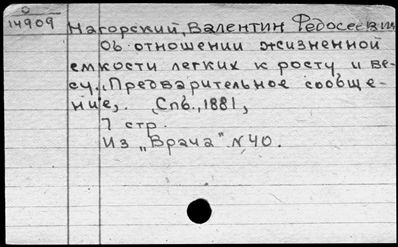 14909
Нагорский, Валентин Федосеевич
Об отношении жизненной
емкости легких к росту и ве-
су. Предварительное сообще-
ние,. Спб., 1881,
7 стр.
Из „Врача" № 40.